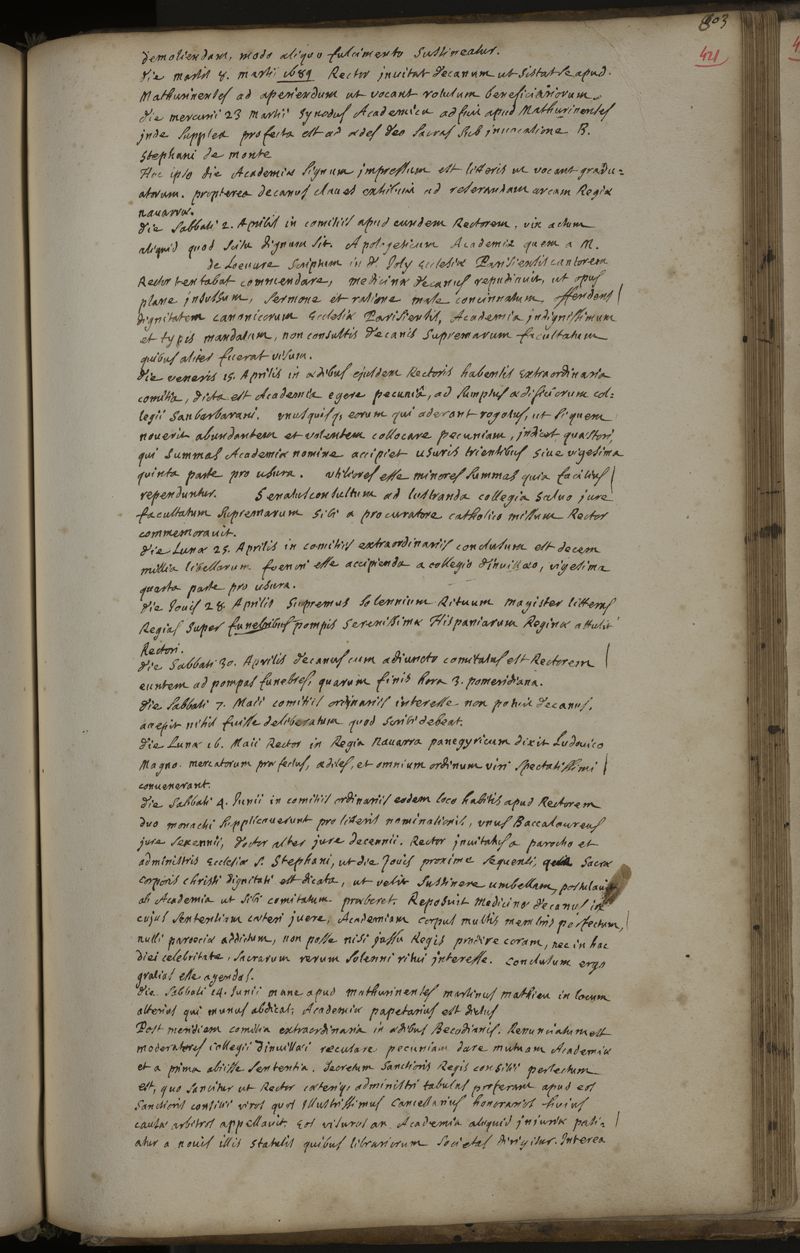 803
421
demoliendam, modo aliquo fulcimento sustineatur.
die martis 8. martii 1689 Rector invitat decanum ut sistat se apud
Mathurinenses ad aperiendum ut vocant rotulum beneficiariorum.
die mercurii 23 Martii synodus Academica adfuit apud Mathurinenses
inde supplex profecta est ad ædes deo sacras sub invocatione B.
Stephani de monte
Hoc ipso die Academiæ signum impressum est litteris ut vocant gradu=
atorum. propterea decanus claves exhibuit ad reserandam arcam Regiæ
navarræ.
die sabbati 2. Aprilis in comitiis apud eundem Rectorem, vix actum
aliquid quod scitu dignum sit. Apologeticum Academiæ quem a M.
de Loeuure scriptum in M Joly Ecclesiæ Parisiensis cantorem
Rector tentabat commendare, medicinæ decanus repudiavit, ut opus
plane indulsum, sermone et ratione male concinnatum, offendens
dignitatem canonicorum Ecclesiæ Parisiensis, Academia indignissimum
et typis mandatum, non consultis decanis supremarum facultatum
quibus aliter fuerat visum.
die veneris 15. Aprilis in ædibus ejusdem Rectoris habentis extraordinaria
comitia, dicta est Academia egere pecuniâ, ad sumptus ædificiorum col=
legii sanbarbarani. unusquisq; eorum qui aderant rogatus, ut si quem
noverit abundantem et volentem collocare pecuniam, indicet quæstori,
qui summas Academiæ nomine accipiet usuris trientibus sive vigesima
quinta parte pro usura. utiliores esse minores summas quia facilius
rependuntur. Senatusconsultum ad lustranda collegia salvo jure
facultatum supremarum sibi a procuratore catholico missum Rector
commemoravit.
die Lunæ 25. Aprilis in comitiis extraordinariis conclusum est decem
millia libellarum fuenori esse accipienda a collegio dinvillæo, vigesima
quarta parte pro usura.
die Jovis 28. Aprilis supremus solennium Rituum magister litteras
Regias super funebribus pompis serenissimæ Hispaniarum Reginæ attulit
Rectori.
die sabbati 30. Aprilis decanus cum adiuncto comitatus est Rectorem
euntem ad pompas funebres, quarum finis hora 3. pomeridiana.
die sabbati 7. Maii comitiis ordinariis interesse non potuit decanus,
accepit nihil fuisse deliberatum quod scribi debeat.
die Lunæ 16. Maii Rector in Regia Navarra panegyricum dixit Ludovico
Magno. mercatorum præfectus, ædiles, et omnium ordinum viri spectatissimi
convenerant.
die sabbati 4. Junii in comitiis ordinariis eodem loco habitis apud Rectorem
duo monachi supplicauerunt pro literis nominationis, unus Baccalaureus
jure sexennii, doctor alter jure decennii. Rector invitatus a parocho et
administris Ecclesiæ S. Stephani, ut die Jovis proxime sequenti, quæ sacra
corporis christi dignitati est dicata, ut velit sustinere umbellam, postulavit
ab Academia ut sibi comitatum præberet. Reposuit medicinæ decanus in
cujus sententiam cæteri juere, Academiam corpus multis membris perfectum,
nulli paroeciæ addictum, non posse nisi jussu Regis prodire coram, nec in hac
diei celebritate, sacrarum rerum solenni ritui interesse. Conclusum ergo
gratias esse agendas.
die sabbati 14. Junii mane apud mathurinenses martinus mathieu in locum
alterius qui munus abdicat, Academiæ papetarius est dictus
Post meridiem comitia extraordinaria in ædibus Becodianis. Renunciatum est
moderatores collegii dinvillæi recusare pecuniam dare mutuam Academiæ
et a prima abiisse sententia. decretum sanctioris Regis consilii perlectum
est, quo sancitur ut Rector cæteriq; administri tabulas proferant apud eos
sanctioris consilii viros quos illustrissimus Cancellarius honorarios huius
causæ arbitros appellavit. eos visuros an Academia aliquid injuriæ pati=
atur a novis illis statutis quibus librariorum societas dirigitur. Interea